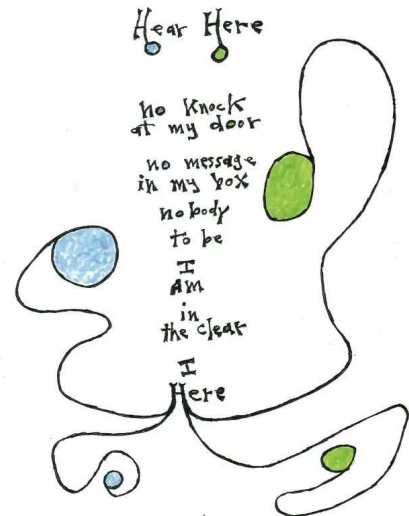 Hear Here
no knock
at my door
no message
in my box
nobody
to be
I
am
in
the clear
I
Here